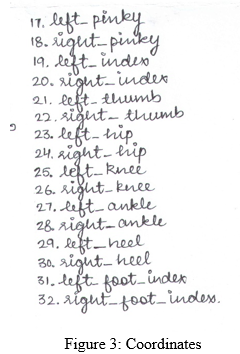 17. left_pinky
18. right_pinky
19. left_index
20. right_index
21. left_thumb
22. right_thumb
23. left_hip
24. right_hip
25. left_knee
26. right_knee
27. left_ankle
28. right_ankle
29. left_heel
30. right_heel
31. left_foot_index
32. right_foot_index.
Figure 3: Coordinates